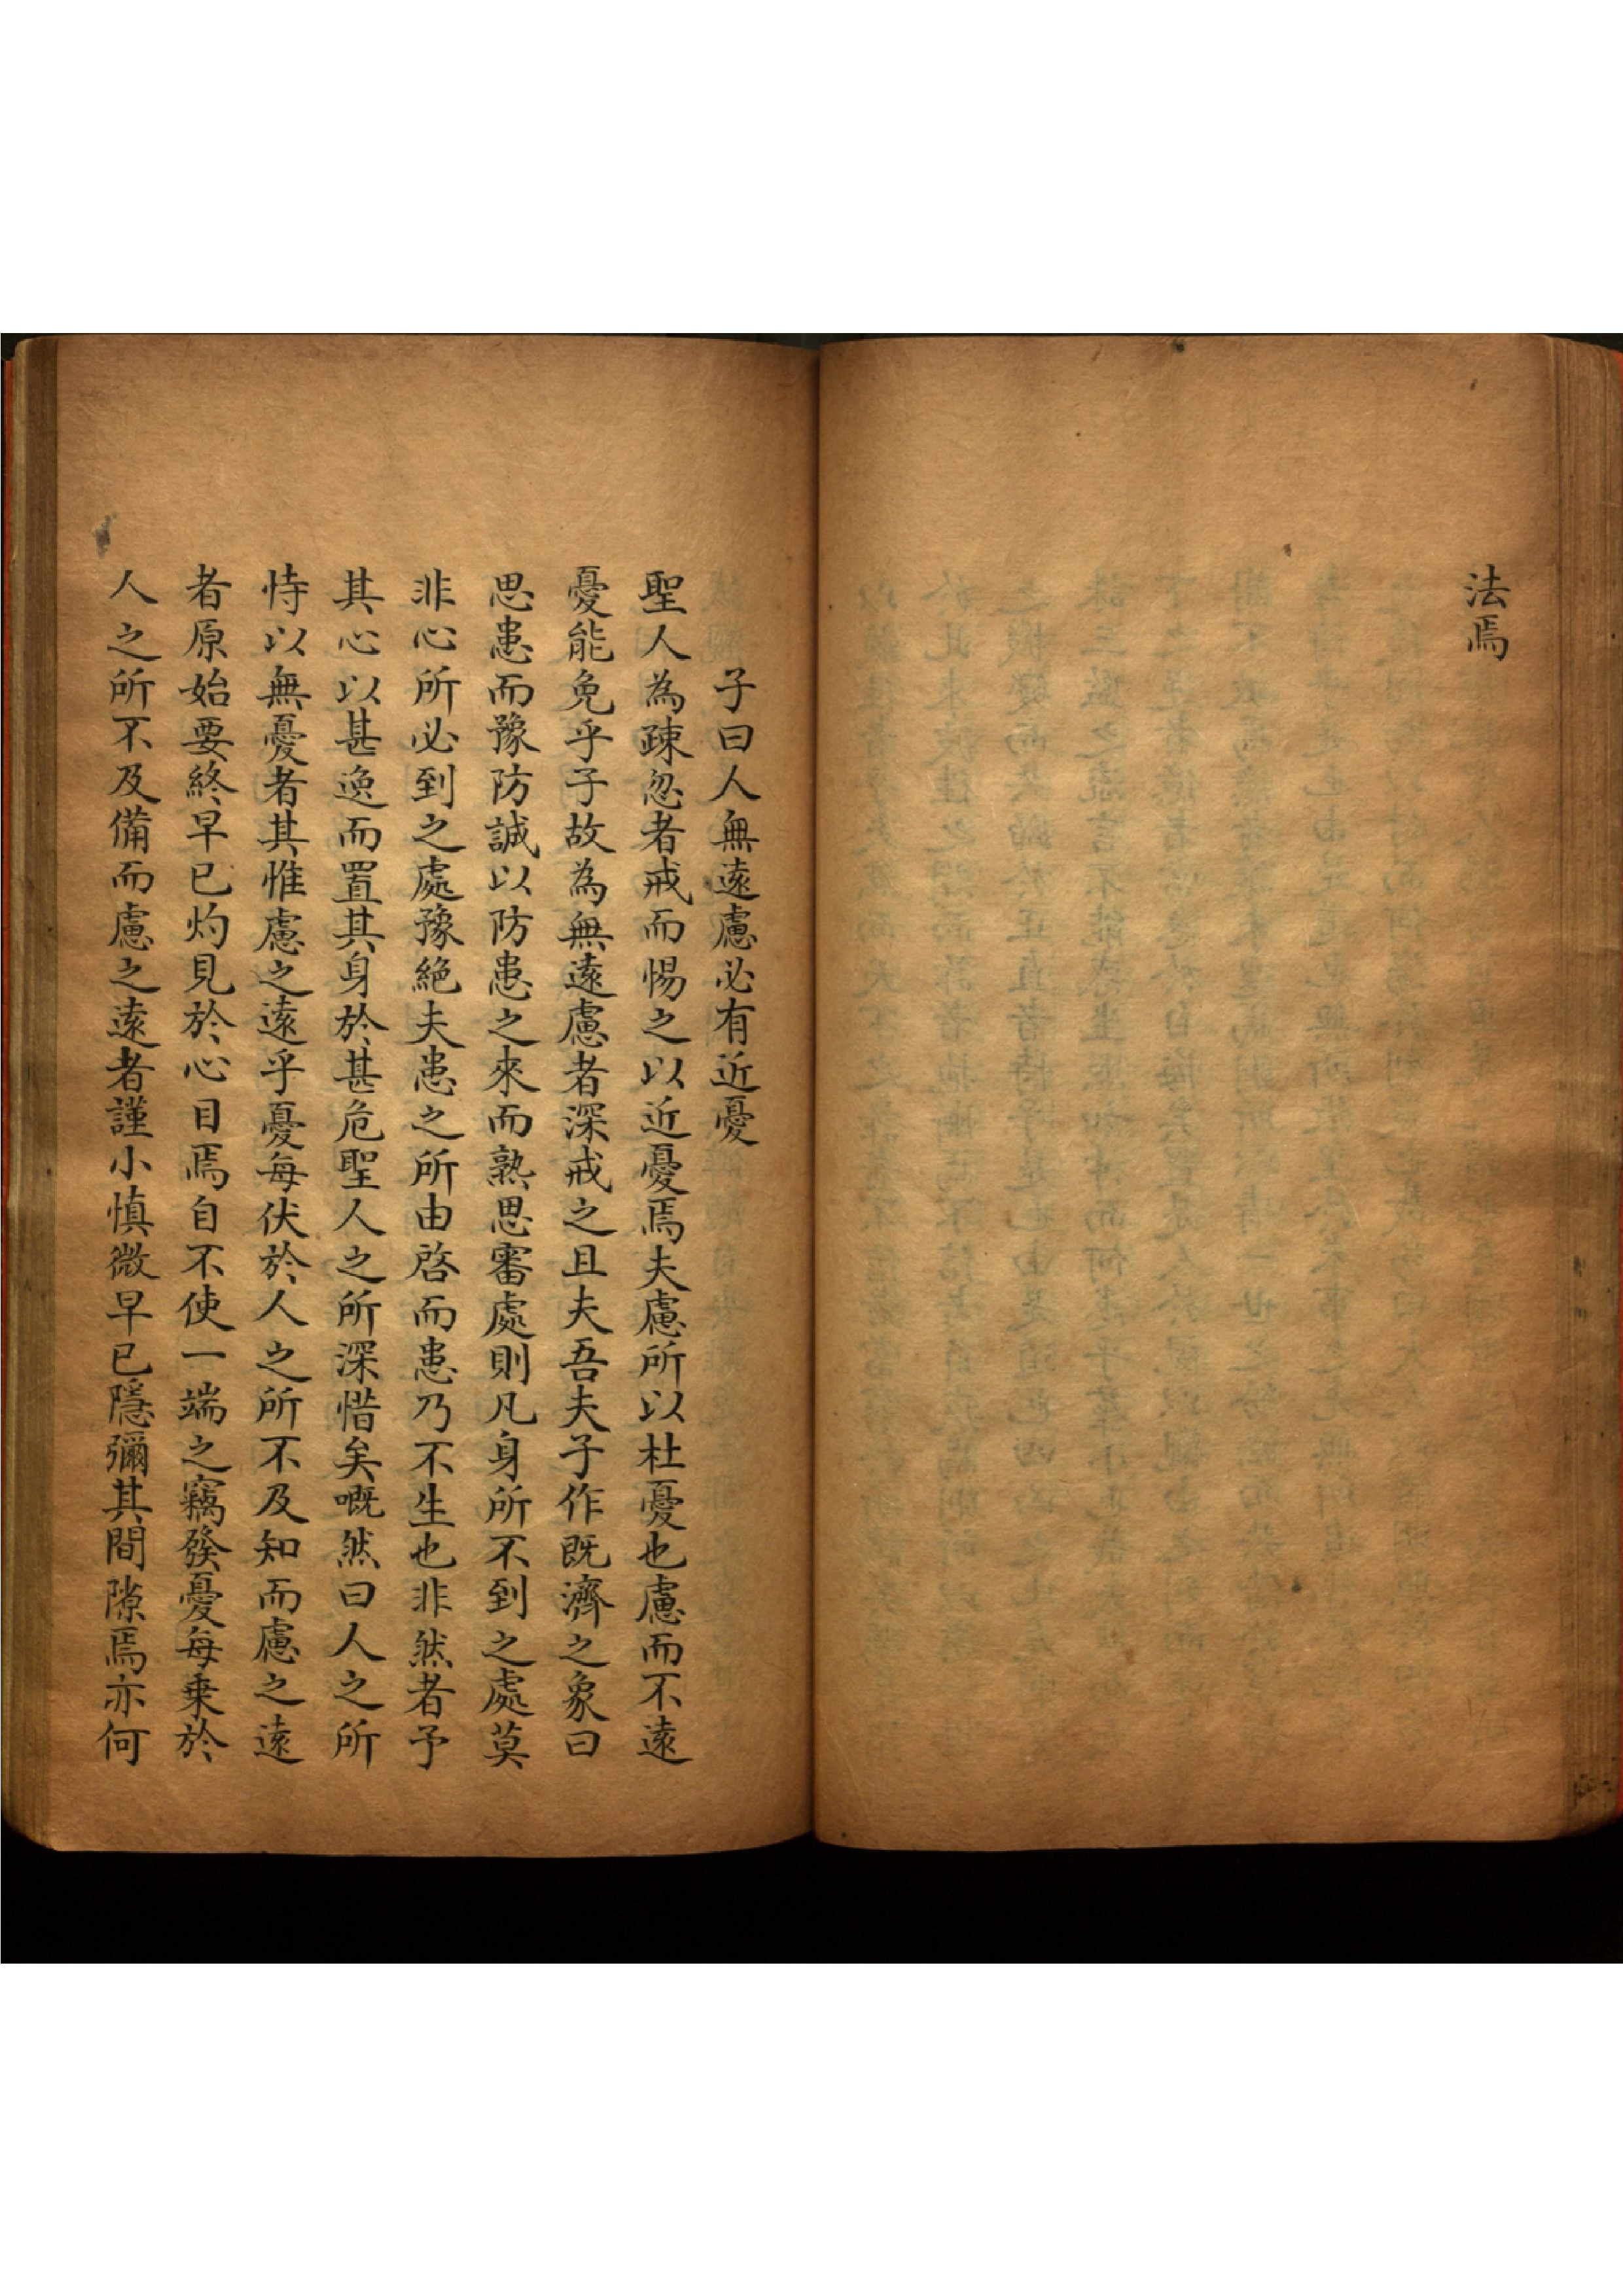 法焉
子曰人無遠慮必有近憂
聖人為疎忽者戒而惕之以近憂焉夫慮所以杜憂也慮而不遠
憂能免乎子故為無遠慮者深戒之且夫吾夫子作既濟之象曰
思患而豫防誠以防患之來而熟思審處則凡身所不到之處莫
非心所必到之處豫絕夫患之所由啓而患乃不生也非然者予
其心以甚逸而置其身於甚危聖人之所深惜矣嘅然曰人之所
恃以無憂者其惟慮之遠乎憂每伏於人之所不及知而慮之遠
者原始要終早已灼見於心目焉自不使一端之竊發憂每乗於
人之所不及備而慮之遠者謹小慎微早已隱彌其間隙焉亦何